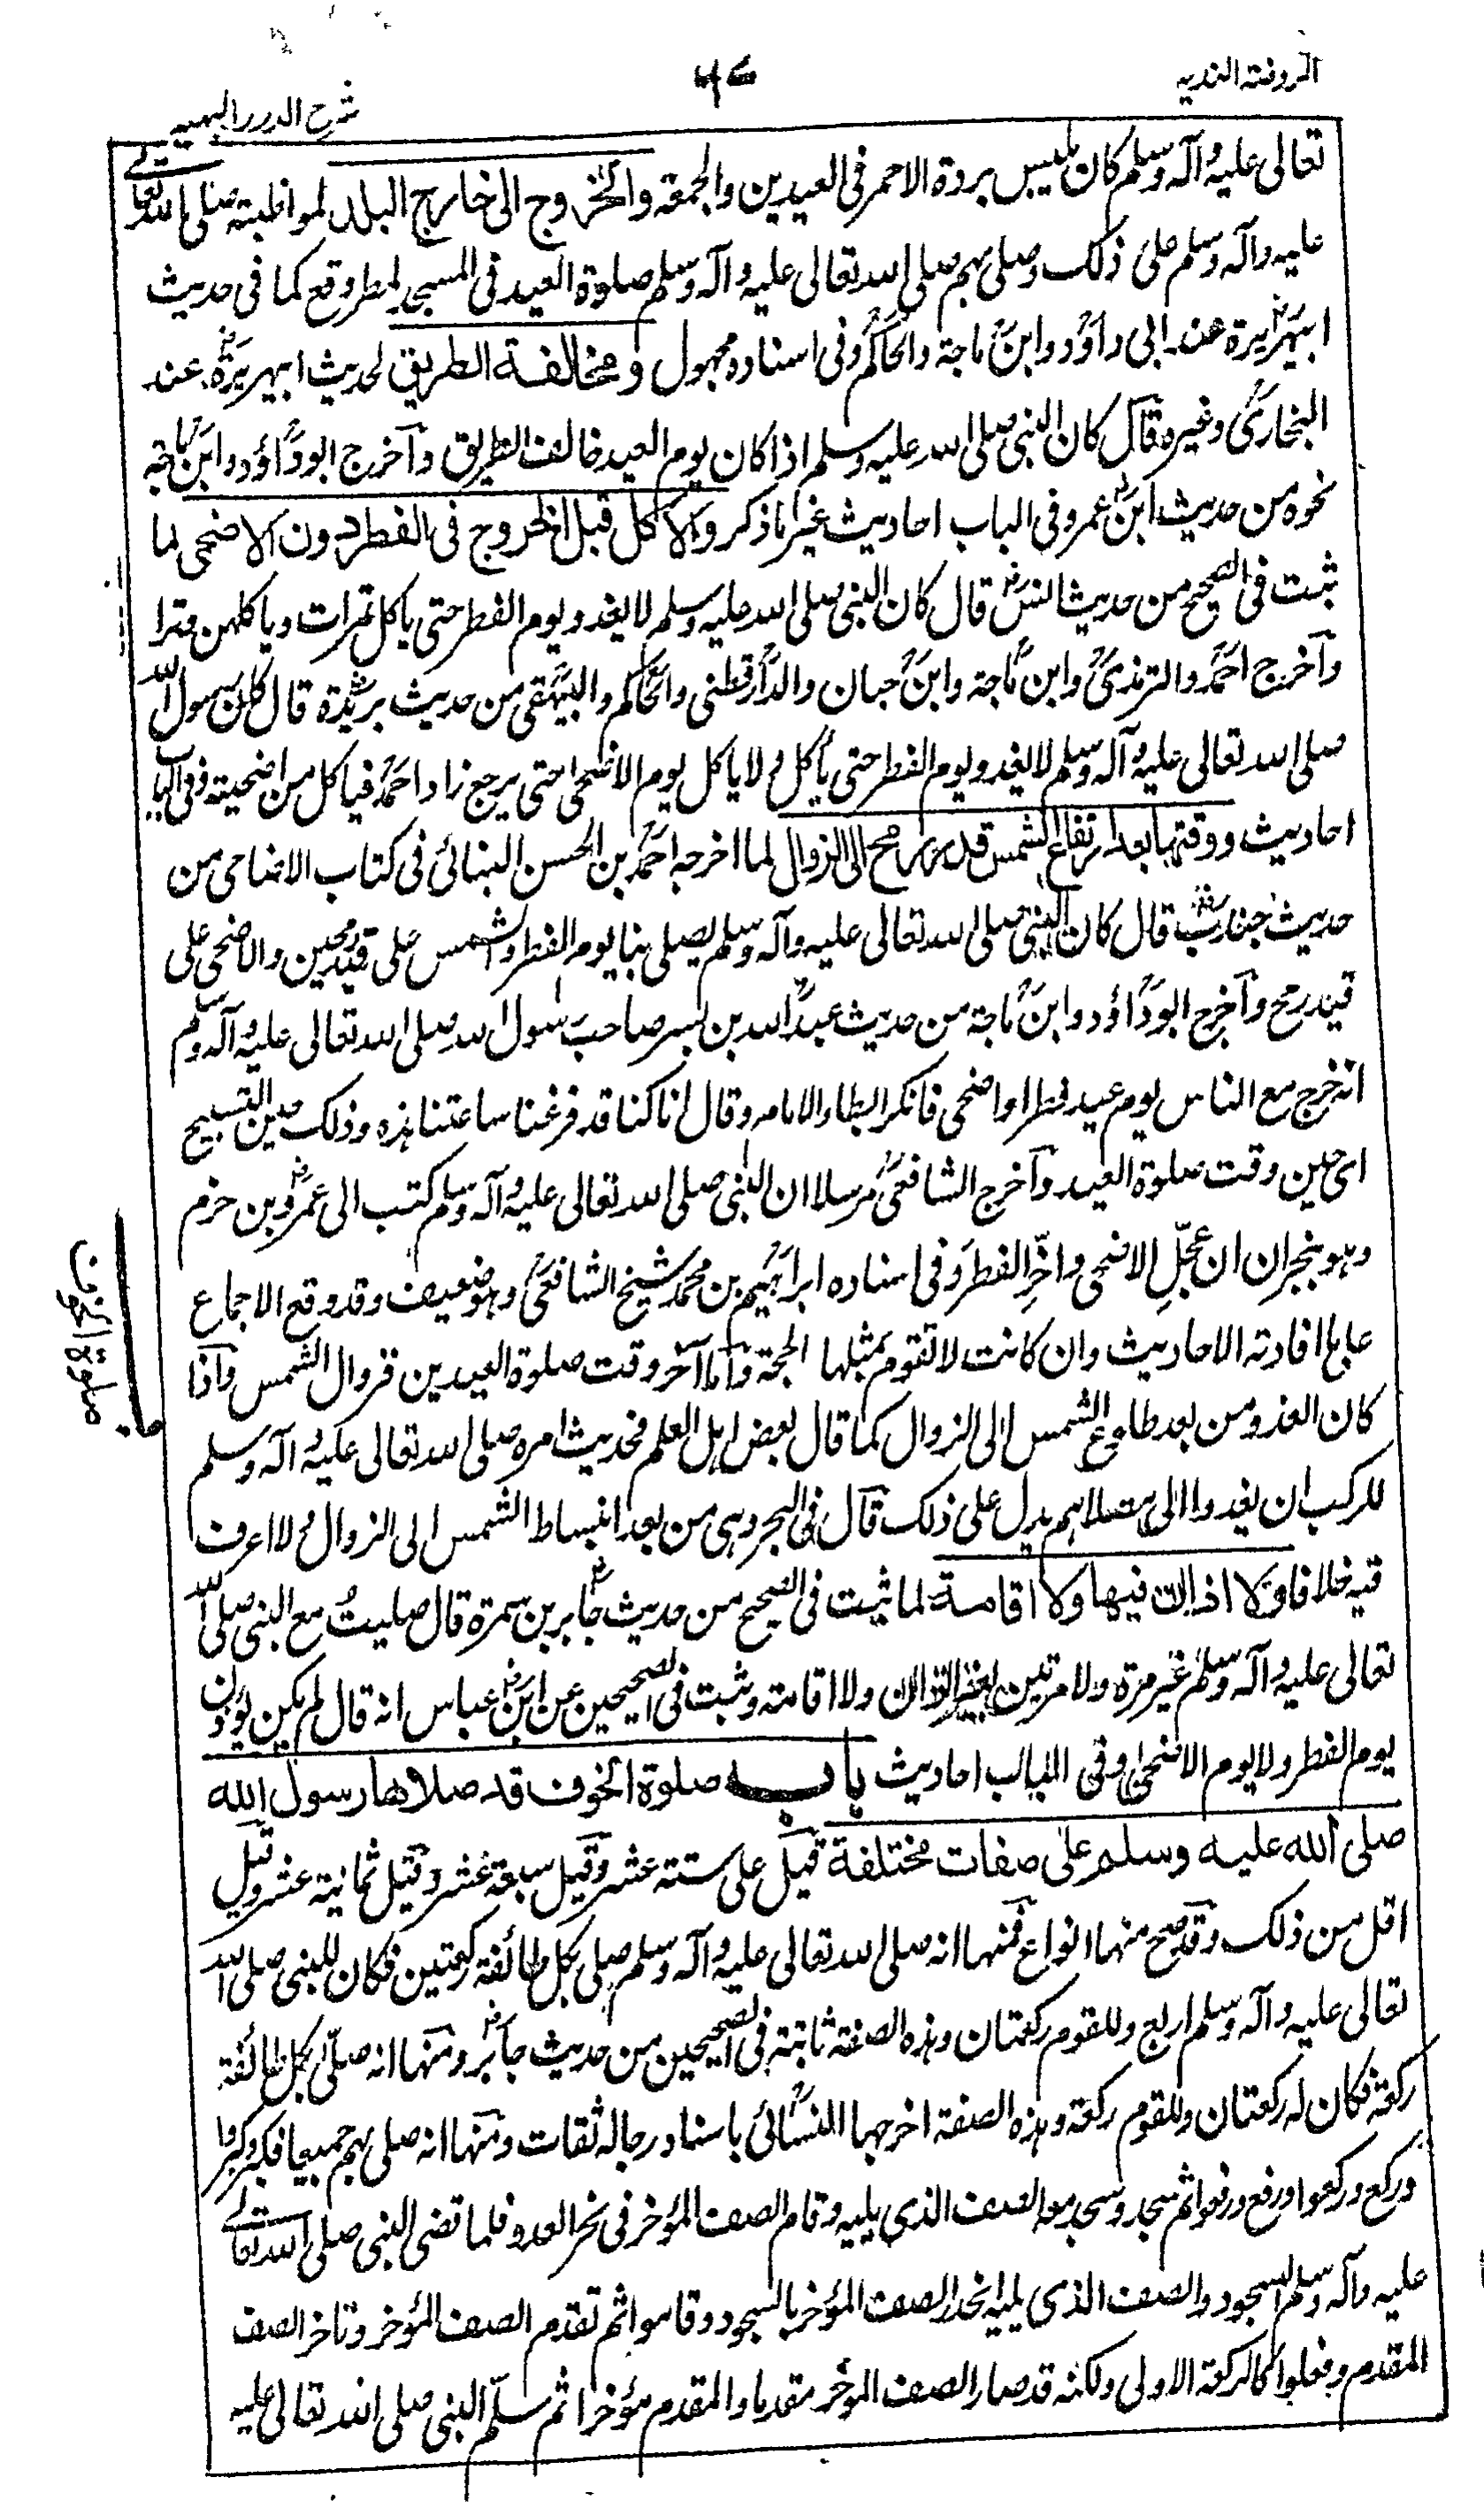 الروضة الندية
٩٧
شرح الدرر البهية
تعالى عليه وآله وسلم كان يلبس بردة الاحمر فى العيدين والجمعة والخروج الى خارج البلد لمواظبته صلى الله تعالى
عليه وآله وسلم على ذلك وصلى بهم صلى الله تعالى عليه وآله وسلم صلوة العيد فى المسجد لمطر وقع كما فى حديث
ابيهريرة عند ابى داؤد وابن ماجة والحاكم وفى اسناده مجهول ومخالفة الطريق لحديث ابيهريرة عند
البخارى وغيره قال كان النبى صلى الله عليه وسلم اذا كان يوم العيد خالف الطريق وآخرج ابوداؤد وابن ماجه
نحوه من حديث ابن عمر وفى الباب احاديث غير ما ذكر والاكل قبل الخروج فى الفطر دون الاضحى لما
ثبت فى الصحيح من حديث انس قال كان النبى صلى الله عليه وسلم لا يغدو يوم الفطر حتى ياكل تمرات وياكلهن وترا
وآخرج احمد والترمذى وابن ماجة وابن حبان والدارقطنى والحاكم والبيهقى من حديث بريدة قال كان رسول الله
صلى الله تعالى عليه وآله وسلم لا يغدو يوم الفطر حتى يأكل ولا ياكل يوم الاضحى حتى يرجع زاد احمد فياكل من اضحيته وفى الباب
احاديث ووقتها بعد ارتفاع الشمس قدر رمح الى الزوال لما اخرجه احمد بن الحسن البنائى فى كتاب الاضاحى من
حديث جندب قال كان النبى صلى الله تعالى عليه وآله وسلم يصلى بنا يوم الفطر والشمس على قيد رمحين والاضحى على
قيد رمح وآخرج ابوداؤد وابن ماجة من حديث عبد الله بن بسر صاحب رسول الله صلى الله تعالى عليه وآله وسلم
انه خرج مع الناس يوم عيد فطر او اضحى فانكر ابطاء الامام وقال انا كنا قد فرغنا ساعتنا هذه وذلك حين التسبيح
اى حين وقت صلوة العيد وآخرج الشافعى مرسلا ان النبى صلى الله تعالى عليه وآله وسلم كتب الى عمرو بن حزم
وهو بنجران ان عجّلِ الاضحى واخّرِ الفطرَ وفى اسناده ابراهيم بن محمد شيخ الشافعى وهو ضعيف وقد وقع الاجماع
على ما افادته الاحاديث وان كانت لا تقوم بمثلها الحجة وآما آخر وقت صلوة العيدين فزوال الشمس وآذا
كان الغدو من بعد طلوع الشمس الى الزوال كما قال بعض اهل العلم فحديث امره صلى الله تعالى عليه وآله وسلم
للركب ان يغدوا الى مصلاهم يدل على ذلك قال فى البحر وهى من بعد انبساط الشمس الى الزوال ولا اعرف
فيه خلافا ولا اذان فيها ولا اقامة لما ثبت فى الصحيح من حديث جابر بن سمرة قال صليتُ مع النبى صلى الله
تعالى عليه وآله وسلم غير مرة ولا مرتين بغير اذان ولا اقامته وثبت فى الصحيحين عن ابن عباس انه قال لم يكن يؤذن
يوم الفطر ولا يوم الاضحى وفى الباب احاديث باب صلوة الخوف قد صلاها رسول الله
صلى الله عليه وسلم على صفات مختلفة قيل على ستة عشر وقيل سبعة عشر وقيل ثمانية عشر وقيل
اقل من ذلك وقد صح منها انواع فمنها انه صلى الله تعالى عليه وآله وسلم صلى بكل طائفة ركعتين فكان للنبى صلى الله
تعالى عليه وآله وسلم اربع وللقوم ركعتان وهذه الصفة ثابتة فى الصحيحين من حديث جابر ومنها انه صلّى بكل طائفة
ركعة فكان له ركعتان وللقوم ركعة وهذه الصفة اخرجها النسائى باسناد رجاله ثقات ومنها انه صلى بهم جميعا فكبر وكبروا
وركع وركعوا ورفع ورفعوا ثم سجد وسجد معه الصف الذى يليه وقام الصف المؤخر فى نحر العدو فلما قضى النبى صلى الله تعالى
عليه وآله وسلم السجود والصف الذى يليه انحدر الصف المؤخر بالسجود وقاموا ثم تقدم الصف المؤخر وتاخر الصف
المقدم وفعلوا كالركعة الاولى ولكنه قد صار الصف المؤخر مقدما والمقدم مؤخرا ثم سلّم النبى صلى الله تعالى عليه
صلوة الخوف